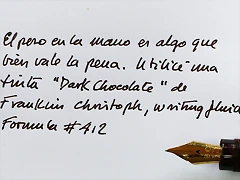 El pero en la mano es algo que
bien vale la pena. Utilicé una
tinta "Dark Chocolate" de
Franklin Christoph, writing fluid
Formula #412